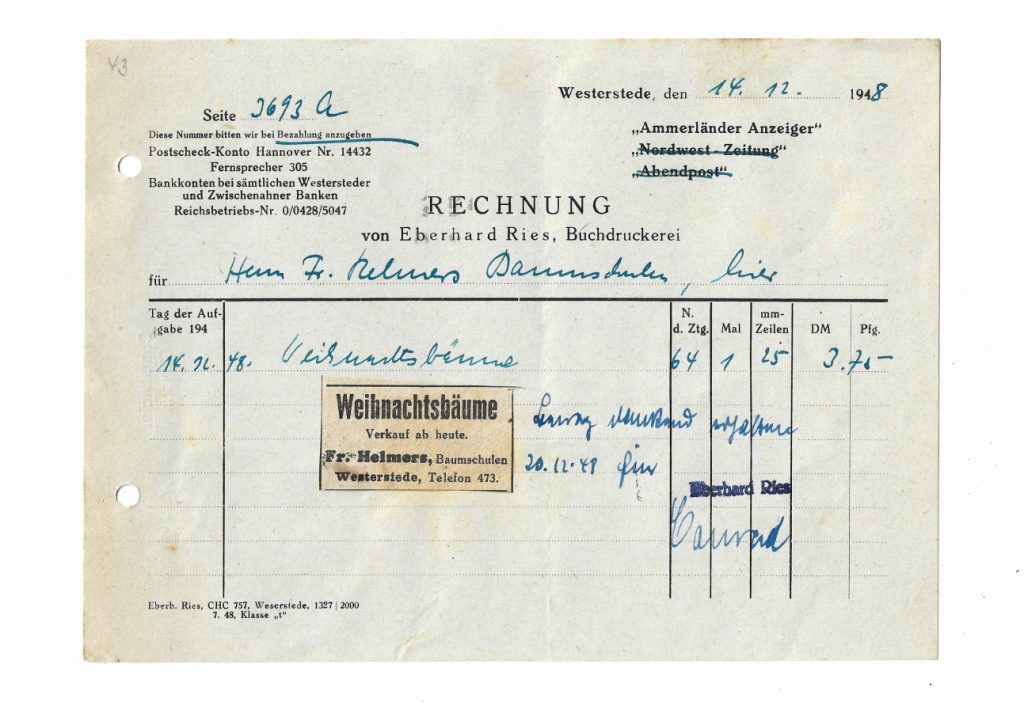 43
Westerstede, den 14. 12. 1948
Seite 3693 A
Diese Nummer bitten wir bei Bezahlung anzugeben
Postscheck-Konto Hannover Nr. 14432
Fernsprecher 305
Bankkonten bei sämtlichen Westersteder
und Zwischenahner Banken
Reichsbetriebs-Nr. 0/0428/5047
„Ammerländer Anzeiger“
„Nordwest-Zeitung“
„Abendpost“
RECHNUNG
von Eberhard Ries, Buchdruckerei
für Herrn Fr. Helmers Baumschulen, hier
Tag der Auf-
gabe 194
N.
d. Ztg.
Mal
mm-
Zeilen
DM
Pfg.
14.12. 48. Weihnachtsbäume 64 1 25 3.75-
Weihnachtsbäume
Verkauf ab heute.
Fr. Helmers, Baumschulen
Westerstede, Telefon 473.
Betrag dankend erhalten
20.12.48 für
Eberhard Ries
Eberh. Ries, CHC 757, Weserstede, 1327 | 2000
7. 48, Klasse „1“